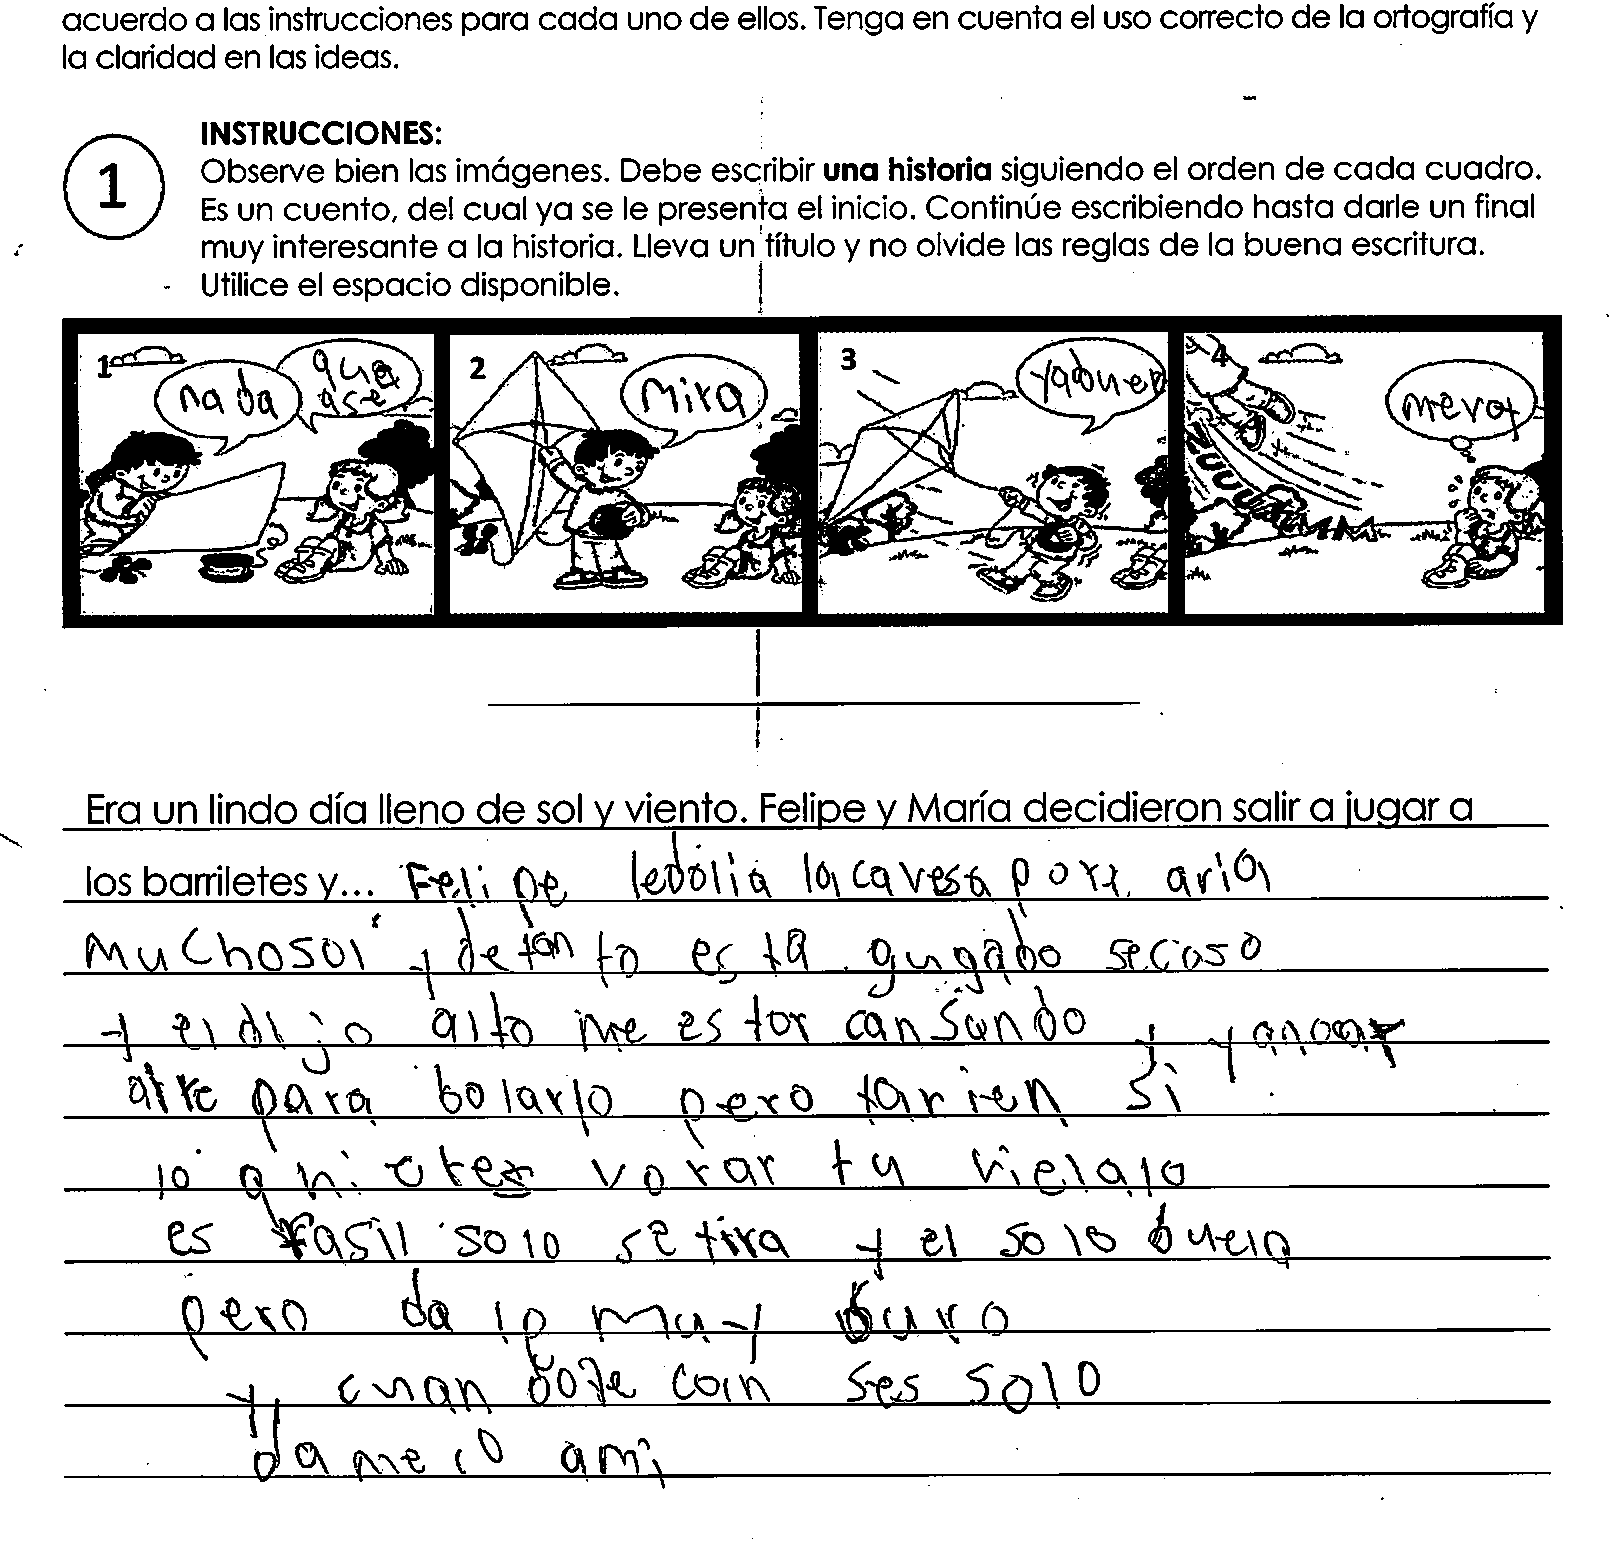 acuerdo a las instrucciones para cada uno de ellos. Tenga en cuenta el uso correcto de la ortografía y
la claridad en las ideas.
1
INSTRUCCIONES:
Observe bien las imágenes. Debe escribir una historia siguiendo el orden de cada cuadro.
Es un cuento, del cual ya se le presenta el inicio. Continúe escribiendo hasta darle un final
muy interesante a la historia. Lleva un título y no olvide las reglas de la buena escritura.
Utilice el espacio disponible.
1
nada
que
ase
2
Mira
3
4
Era un lindo día lleno de sol y viento. Felipe y María decidieron salir a jugar a
los barriletes y... Felipe ledolia la cavesa aria
Muchosol y detanto esta gugado secaso
y el dijo alto me estor cansando y
aire para bolarlo pero si
lo vorar tu
es fasil solo se tira y el solo buela
pero dalo muy duro
y cuan solo
damelo ami